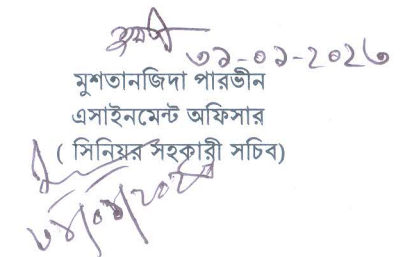 ৩১-০১-২০২৩
মুশতানজিদা পারভীন
এসাইনমেন্ট অফিসার
( সিনিয়র সহকারী সচিব)